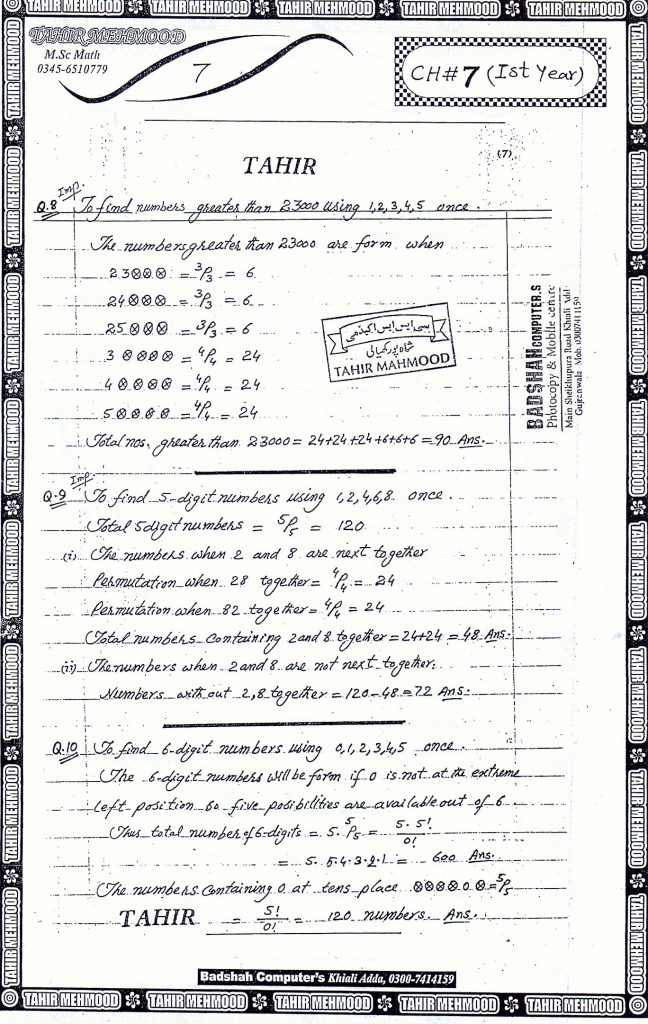 TAHIR MEHMOOD TAHIR MEHMOOD TAHIR MEHMOOD TAHIR MEHMOOD TAHIR MEHMOOD
TAHIR MEHMOOD
M.Sc Math
0345-6510779
7
CH# 7 (Ist Year)
TAHIR
(7)
Imp.
Q.8 To find numbers greater than 23000 using 1,2,3,4,5 once.
The numbers greater than 23000 are form when
23⊗⊗⊗ = ³P₃ = 6
24⊗⊗⊗ = ³P₃ = 6
25⊗⊗⊗ = ³P₃ = 6
3⊗⊗⊗⊗ = ⁴P₄ = 24
4⊗⊗⊗⊗ = ⁴P₄ = 24
5⊗⊗⊗⊗ = ⁴P₄ = 24
سی ایس ایس اکیڈمی
شاہ پور کھیالی
TAHIR MAHMOOD
BADSHAH COMPUTER,S
Phbtocopy & Mobile centre
Main Sheikhupura Road Khiali Adda
Gujranwala Mob. 03007411159
Total nos. greater than 23000 = 24+24+24+6+6+6 = 90 Ans.
Imp
Q.9 To find 5-digit numbers using 1,2,4,6,8 once.
Total 5 digit numbers = ⁵P₅ = 120
(i) The numbers when 2 and 8 are next together
Permutation when 28 together = ⁴P₄ = 24
Permutation when 82 together = ⁴P₄ = 24
Total numbers containing 2 and 8 together = 24+24 = 48 Ans.
(ii) The numbers when 2 and 8 are not next together.
Numbers with out 2,8 together = 120-48 = 72 Ans.
Q.10 To find 6-digit numbers using 0,1,2,3,4,5 once.
The 6-digit numbers will be form if 0 is not at the extreme
left position so five posibilities are available out of 6.
Thus total number of 6-digits = 5. ⁵P₅ = 5. 5!/0!
= 5. 5.4.3.2.1 = 600 Ans.
The numbers containing 0 at tens place ⊗⊗⊗⊗0⊗ = ⁵P₅
TAHIR = 5!/0! = 120 numbers. Ans.
Badshah Computer's Khiali Adda, 0300-7414159
TAHIR MEHMOOD TAHIR MEHMOOD TAHIR MEHMOOD TAHIR MEHMOOD TAHIR MEHMOOD